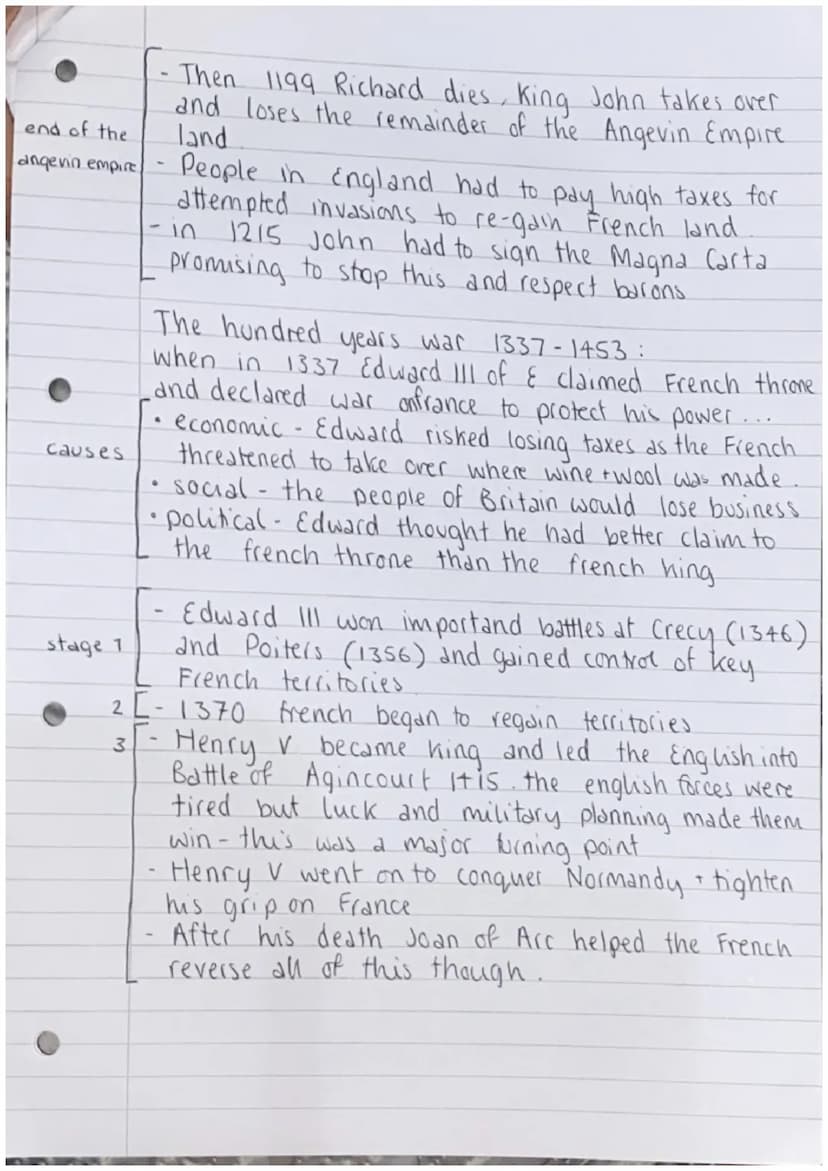 - Then 1199 Richard dies, King John takes over
and loses the remainder of the Angevin Empire
end of the
land.
angevin empire
- People in England had to pay high taxes for
attempted invasions to re-gain French land.
- in 1215 John had to sign the Magna Carta
promising to stop this and respect barons
The hundred years war 1337-1453:
when in 1337 Edward III of E claimed French throne
and declared war onfrance to protect his power...
• economic - Edward risked losing taxes as the French
causes
threatened to take over where wine + wool was made.
• social - the people of Britain would lose business
• political - Edward thought he had better claim to
the french throne than the french king
- Edward III won importand battles at Crecy (1346)
stage 1
and Poiters (1356) and gained control of key
French territories
2 - 1370 french began to regain territories
3 - Henry V became king and led the English into
Battle of Agincourt 1415. the english forces were
tired but luck and military planning made them
win - this was a major turning point
- Henry V went on to conquer Normandy + tighten
his grip on France
- After his death Joan of Arc helped the French
reverse all of this though.